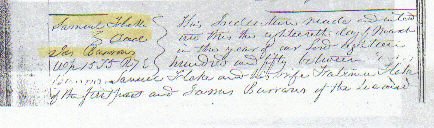 Samuel Flake
& Deed
Jas Barrow
This Indenture made and entered
into this the eighteenth day of March
in this year of our Lord Eighteen
hundred and fifty between
Samuel Flake and his wife Flake
of the first part and James Barrows of the Second